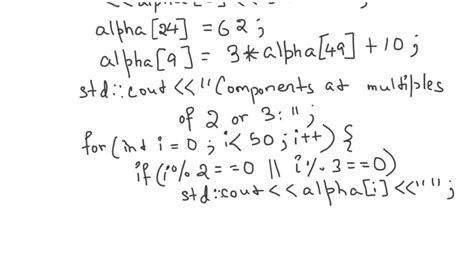 alpha[24] = 62;
alpha[9] = 3*alpha[49] + 10;
std::cout<<"Components at multiples
of 2 or 3:";
for(int i=0; i<50; i++) {
if(i%2==0 || i%3==0)
std::cout<<alpha[i]<<" ";